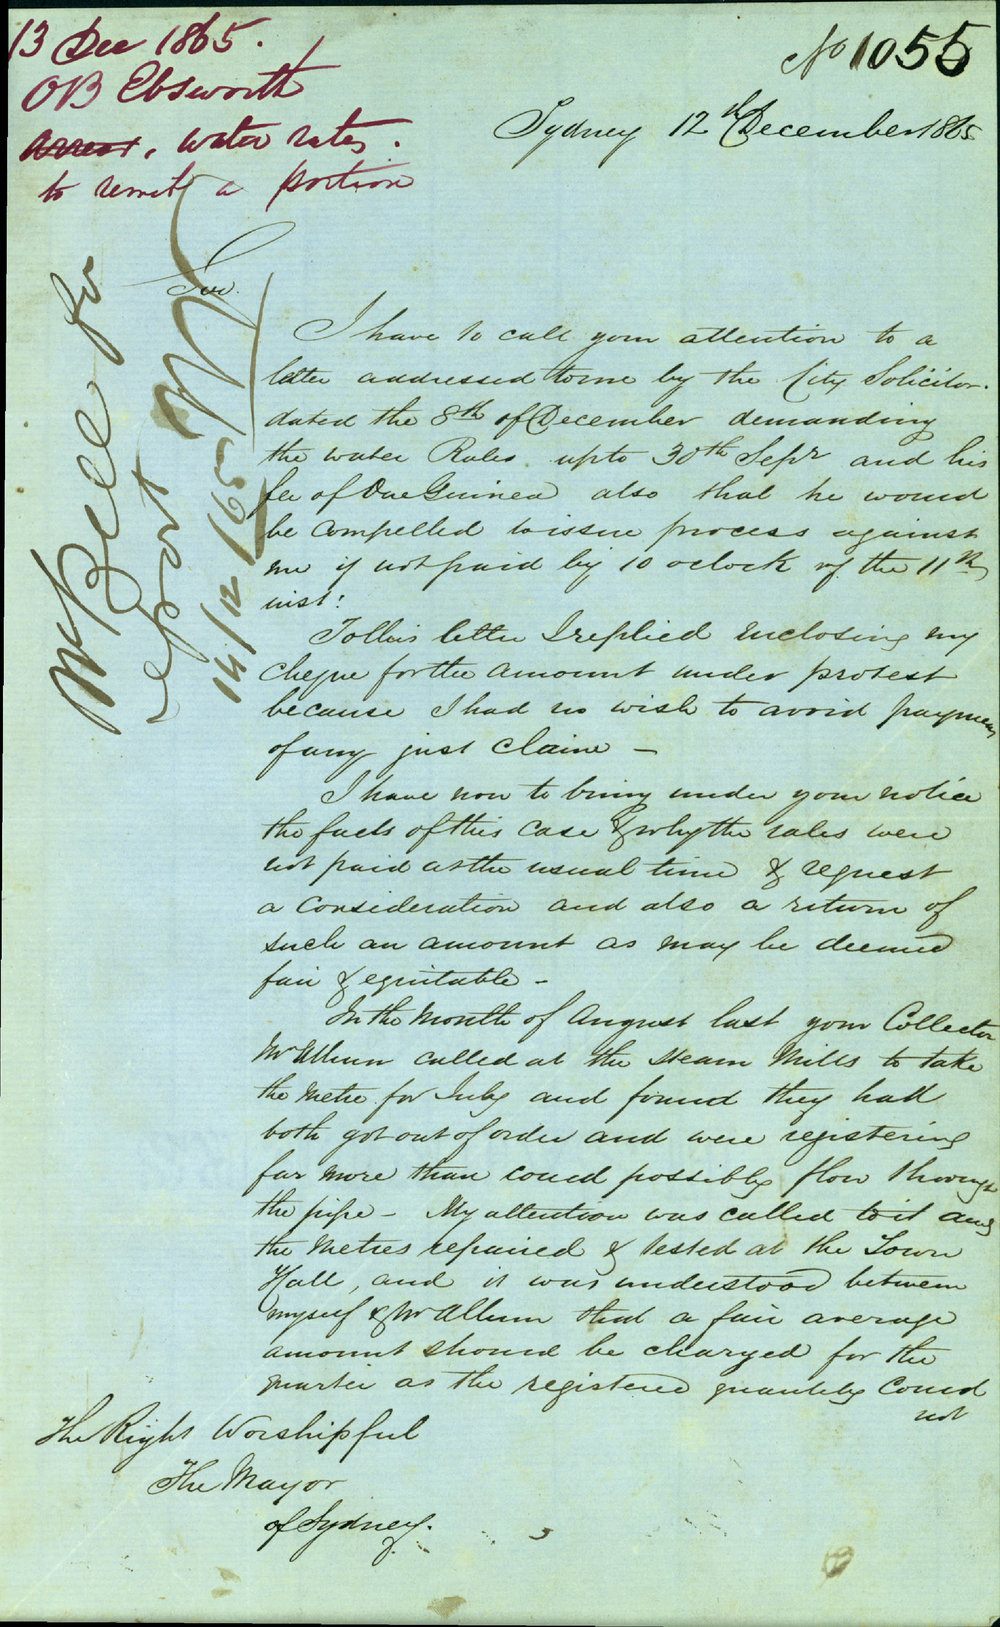 13 Dec 1865.
OB Ebsworth
arrear, water rates.
to remit a portion
No 1055
Sydney 12th December 1865
Mr Bell for
report
14/12/65
Sir.
I have to call your attention to a
letter addressed to me by the City Solicitor.
dated the 8th of December demanding
the water Rates upto 30th Sepr and his
fee of One Guinea also that he would
be compelled to issue process against
me if not paid by 10 oclock of the 11th
inst:
To this letter I replied enclosing my
cheque for the amount under protest
because I had no wish to avoid payment
of any just claim –
I have now to bring under your notice
the facts of this case & why the rates were
not paid at the usual time & request
a consideration and also a return of
such an amount as may be deemed
fair & equitable –
In the Month of August last your Collector
Mr Allum called at the Steam Mills to take
the Metre for July and found they had
both got out of order and were registering
far more than could possibly flow through
the pipe – My attention was called to it and
the Metres repaired & tested at the Town
Hall, and it was understood between
myself & Mr Allum that a fair average
amount should be charged for the
quarter as the registered quantity could
not
The Right Worshipful
The Mayor
of Sydney.